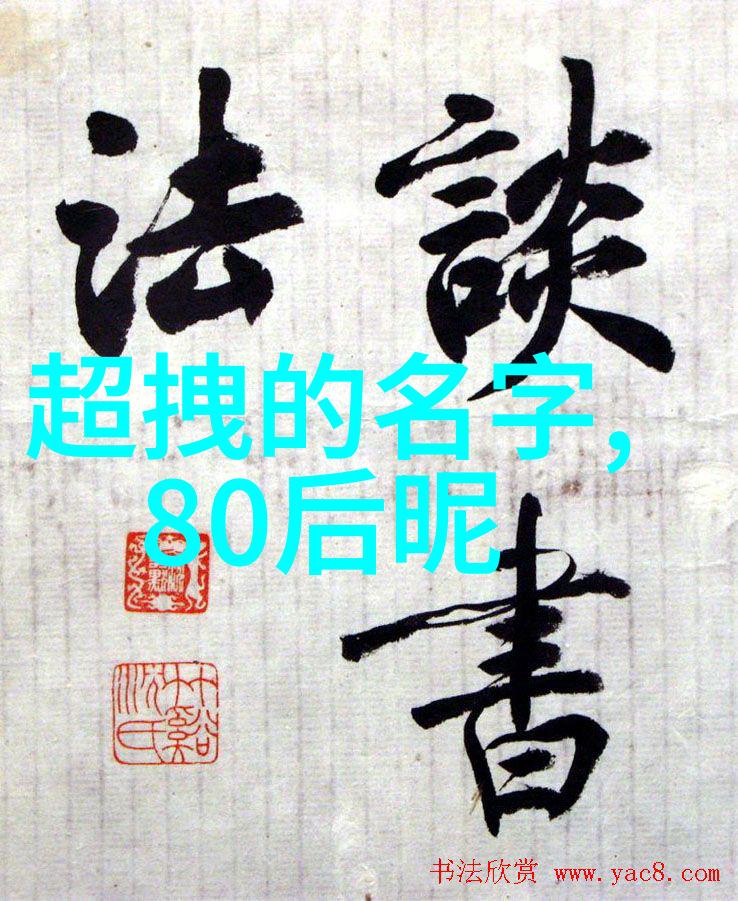 談書
法
超拽的名字,
80后昵
书法欣赏 www.yac8.com